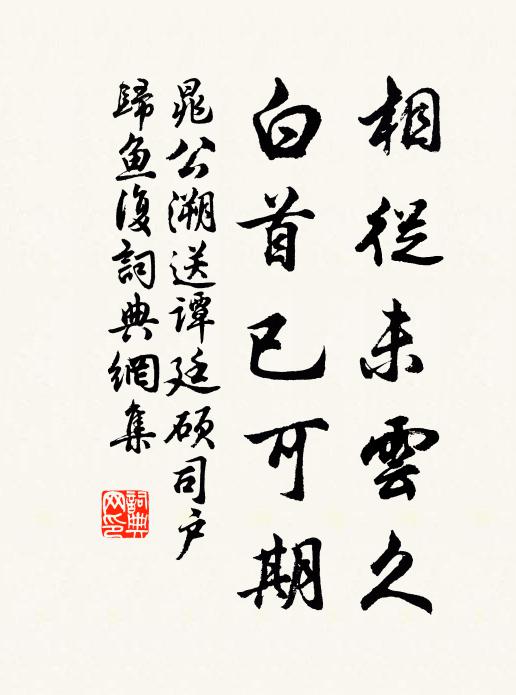 相從未雲久
白首已可期
晁公溯送譚廷碩司戶
歸魚復詞典網集
詞典
网印